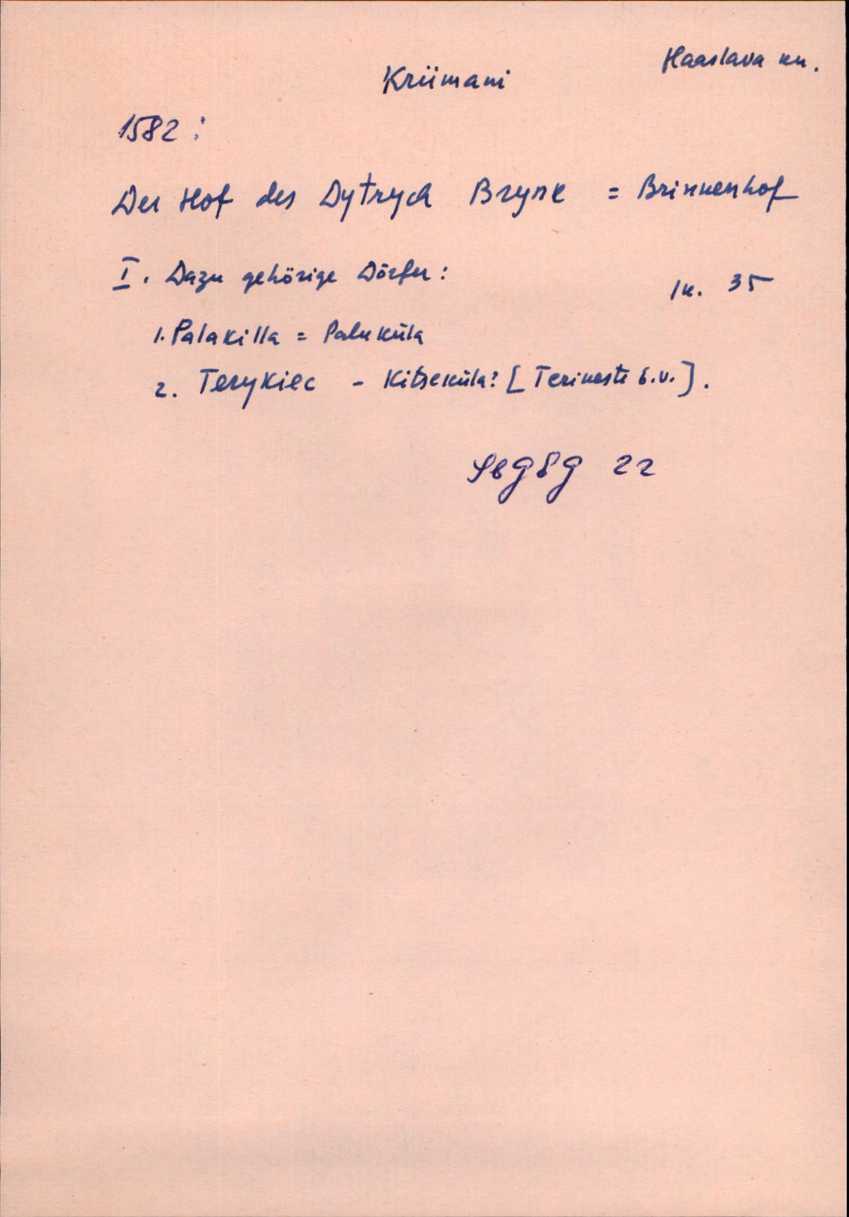 Haaslava kn.
Kriimani
1582:
Der Hof des Dytrych Brynk = Brinkenhof
I. Dazu gehörige Dörfer:
lk. 35
1. Palakilla = Paluküla
2. Terykiec - Kitseküla? [Terikeste s.v.].
SbGEG 22